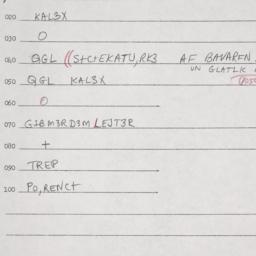 020 KAL3X
030 O
040 QGL ((S+C+EKATU,RK3 AF BAVAREN
UN GLATLIK
050 QGL KAL3X
060 O
070 G1BM3RD3M LEJT3R
080 +
090 TREP
100 PO,RENC+